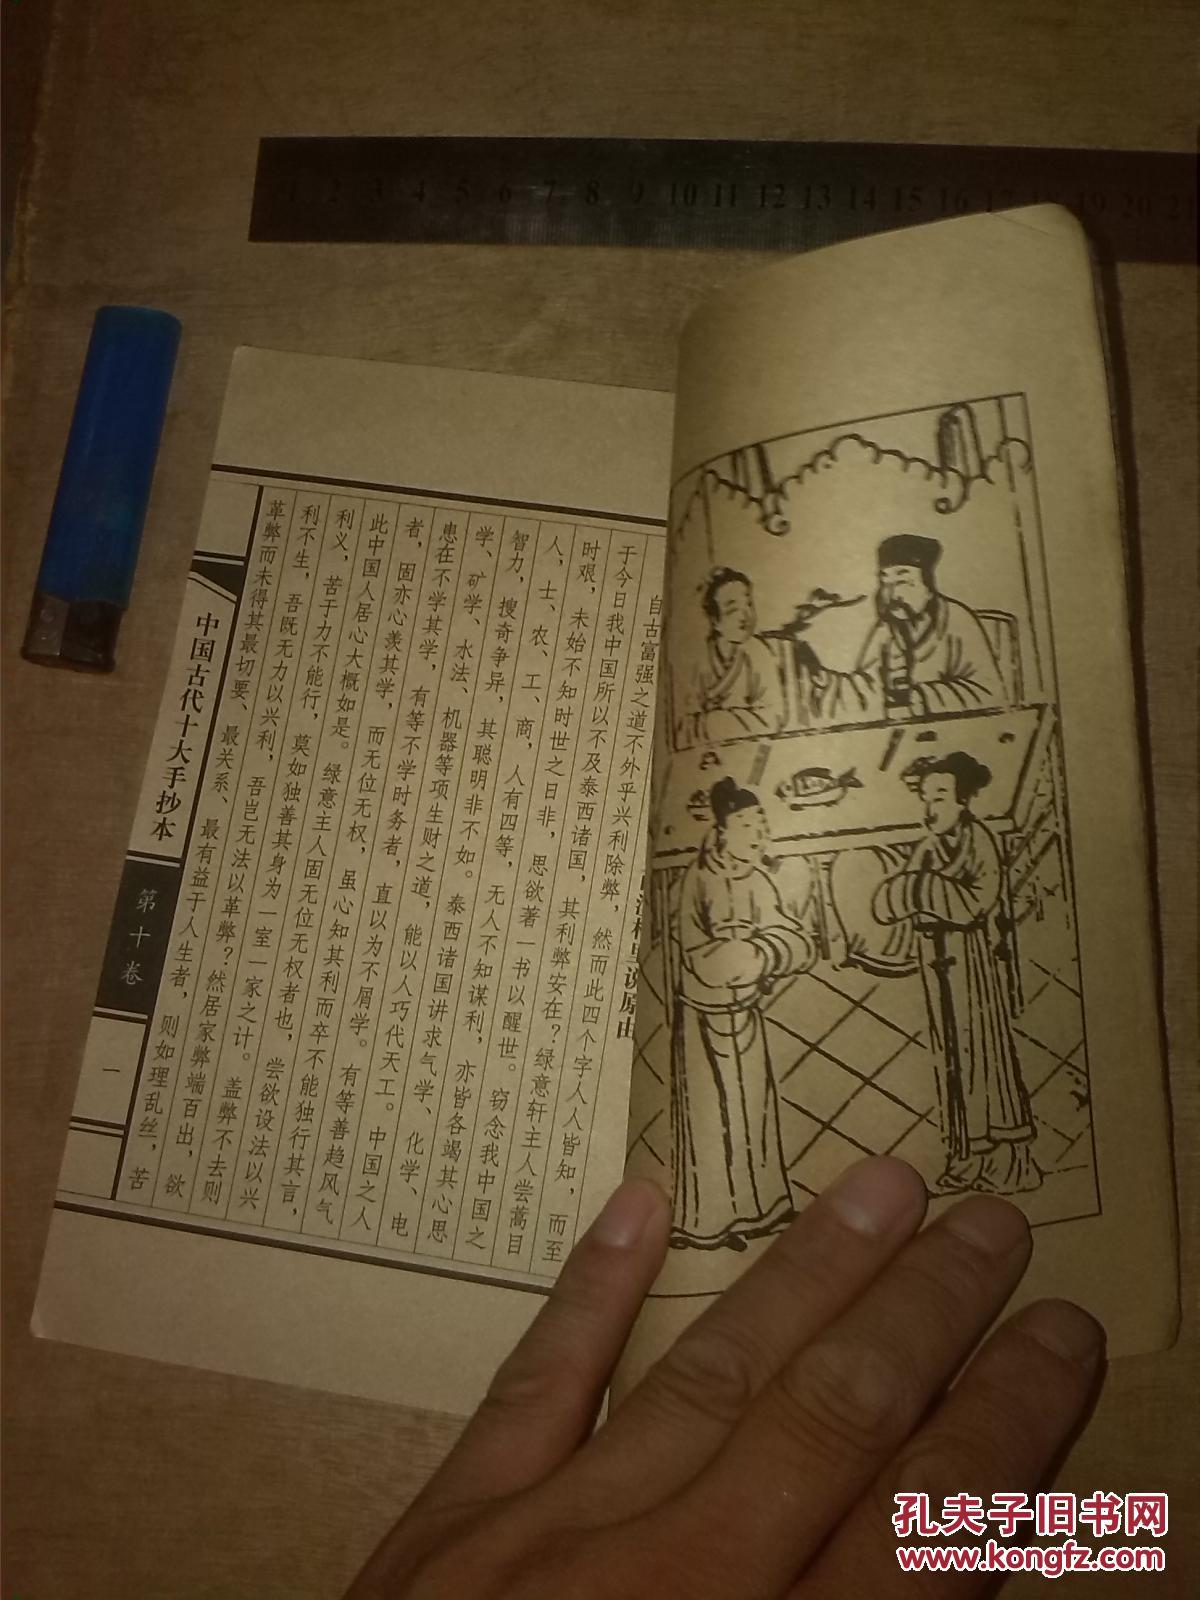 说原由
自古富强之道不外乎兴利除弊，然而此四个字人人皆知，而至
于今日我中国所以不及泰西诸国，其利弊安在？绿意轩主人尝蒿目
时艰，未始不知时世之日非，思欲著一书以醒世。窃念我中国之
人，士、农、工、商，人有四等，无人不知谋利，亦皆各竭其心思
智力，搜奇争异，其聪明非不如。泰西诸国讲求气学、化学、电
学、矿学、水法、机器等项生财之道，能以人巧代天工。中国之人
患在不学其学，有等不学时务者，直以为不屑学。有等善趋风气
者，固亦心羡其学，而无位无权，虽心知其利而卒不能独行其言，
此中国人居心大概如是。绿意主人固无位无权者也，尝欲设法以兴
利义，苦于力不能行，莫如独善其身为一室一家之计。盖弊不去则
利不生，吾既无力以兴利，吾岂无法以革弊？然居家弊端百出，欲
革弊而未得其最切要、最关系、最有益于人生者，则如理乱丝，苦
中国古代十大手抄本
第十卷
一
1 2 3 4 5 6 7 8 9 10 11 12 13 14 15 16 17 18 19 20 21
孔夫子旧书网
www.kongfz.com